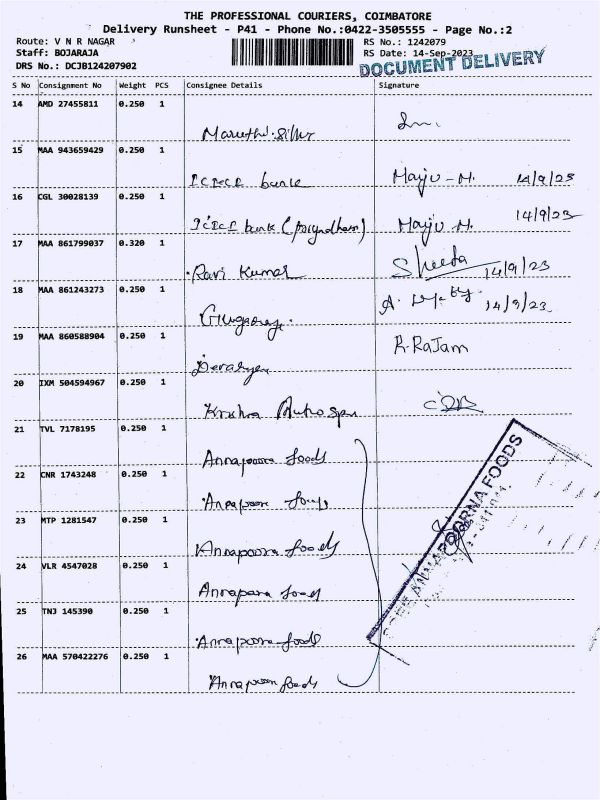 THE PROFESSIONAL COURIERS, COIMBATORE
Delivery Runsheet - P41 - Phone No.:0422-3505555 - Page No.:2
Route: V N R NAGAR RS No.: 1242079
Staff: BOJARAJA RS Date: 14-Sep-2023
DRS No.: DCJB124207902 DOCUMENT DELIVERY
S No Consignment No Weight PCS Consignee Details Signature
14 AMD 27455811 0.250 1
15 MAA 943659429 0.250 1
ICICI bank Manju-M. 14/9/23
16 CGL 30028139 0.250 1
ICICI bank Manju M. 14/9/23
17 MAA 861799037 0.320 1
Ravi Kumar Sheeda 14/9/23
18 MAA 861243273 0.250 1
A. 14/9/23
19 MAA 860588904 0.250 1
R.Rajam
20 IXM 504594967 0.250 1
Krishna Auto Spa
21 TVL 7178195 0.250 1
Annapoorna foods
22 CNR 1743248 0.250 1
Annapoorna foods
23 MTP 1281547 0.250 1
Annapoorna foods
24 VLR 4547028 0.250 1
Annapoorna foods
25 TNJ 145390 0.250 1
Annapoorna foods
26 MAA 570422276 0.250 1
Annapoorna foods
SREE ANNAPOORNA FOODS